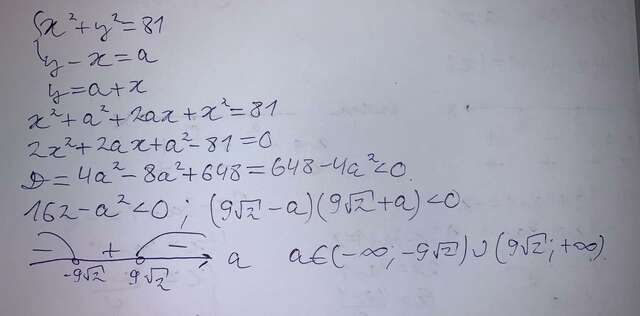 {x²+y²=81
y-x=a
y=a+x
x²+a²+2ax+x²=81
2x²+2ax+a²-81=0
D=4a²-8a²+648=648-4a²<0.
162-a²<0; (9√2-a)(9√2+a)<0
- + - a a∈(-∞;-9√2)∪(9√2;+∞)
-9√2 9√2